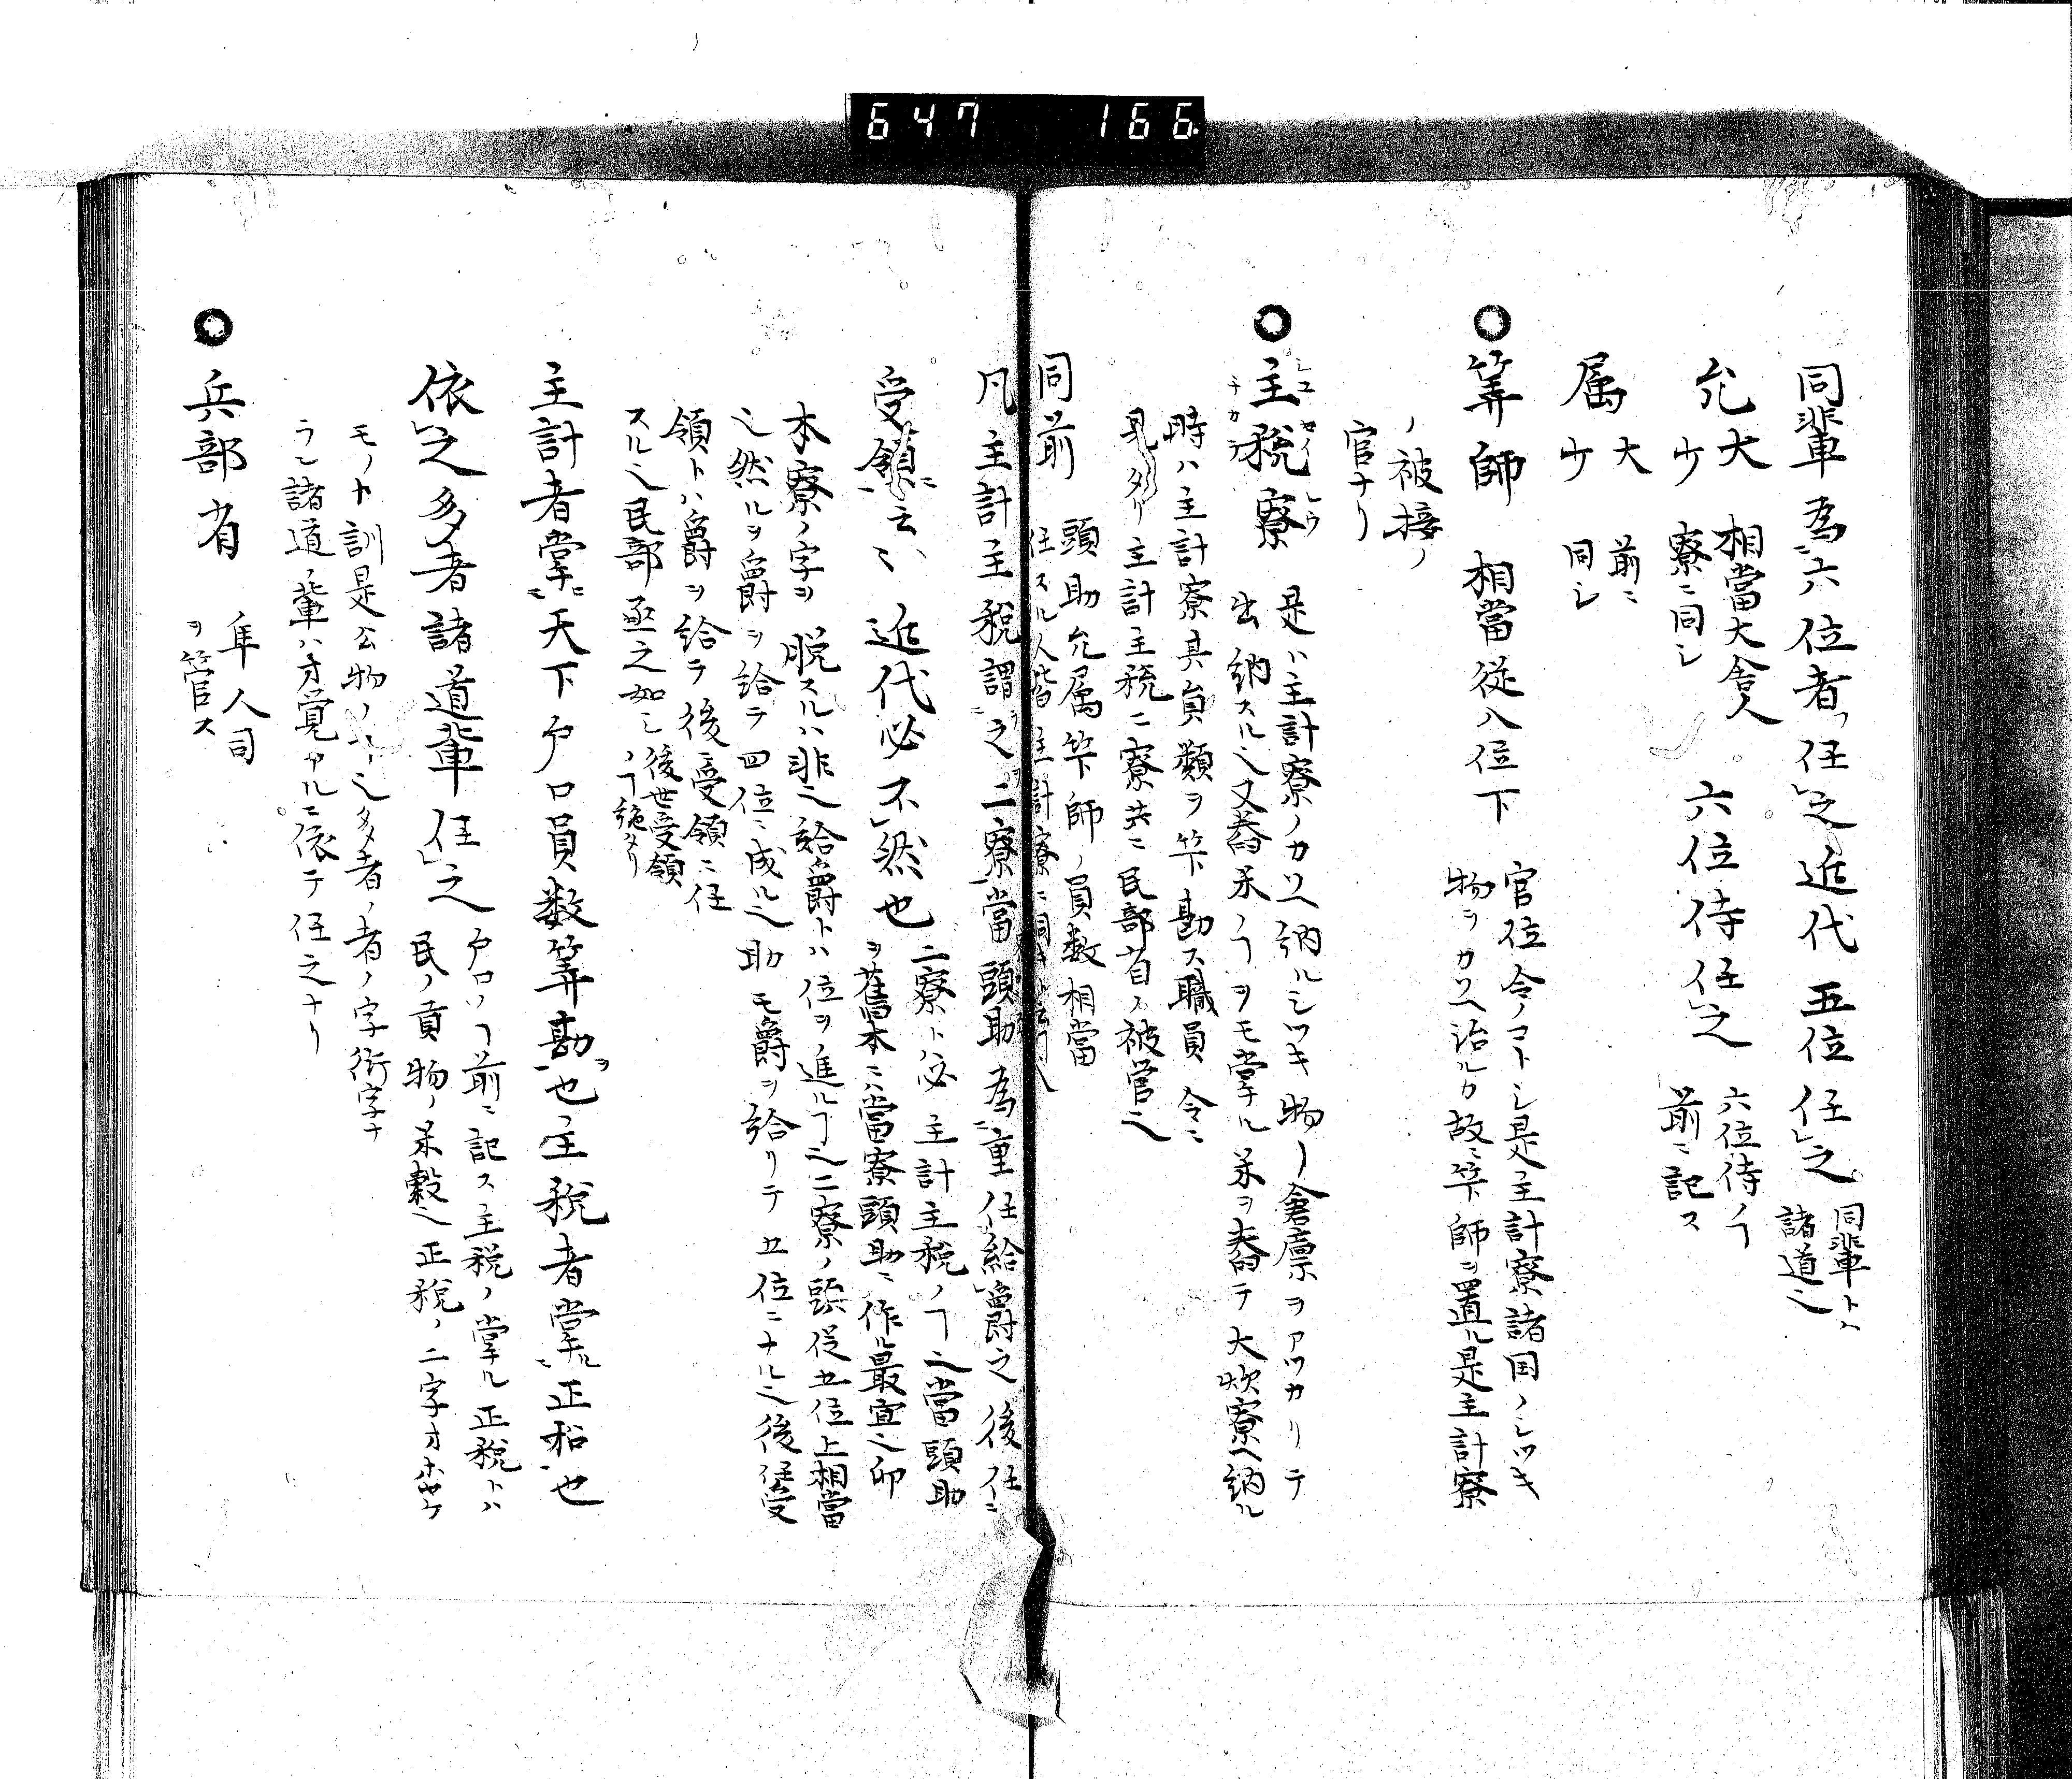 647 166
同輩為六位者任之近代五位任之 同輩トハ
諸道也
允 大 相當大舎人 六位侍任之 六位侍ノヿ
少 寮ニ同シ 前ニ記ス
属 大 前ニ
少 同シ
筭師 相當従八位下 官位令ノコトシ是主計寮諸国ノミツキ
物ヲカソヘ治ルカ故ニ筭師ヲ置ル是主計寮
ノ被接ノ
官ナリ
主税寮 是ハ主計寮ノカソヘ納ルミツキ物ノ倉廩ヲアツカリテ
出納スル也又舂米ノヿヲモ掌ル米ヲ舂テ大炊寮ヘ納ル
時ハ主計寮其負類ヲ筭勘ス職員令ニ
見タリ主計主税二寮共ニ民部省ノ被官也
同前 頭助允属筭師ノ員数相當
任スル人皆主計寮ニ同
凡主計主税謂之二寮當頭助為重任給爵之後任
受領云々近代必不然也 二寮ト必主計主税ノヿ也當頭助
ヲ舊本ニハ當寮頭助ニ作ル最宜也
本寮ノ字ヲ脱スルハ非也給爵トハ位ヲ進ルヿ也二寮ノ頭従五位上相當
也然ルヲ爵ヲ給テ四位ニ成ル也助モ爵ヲ給リテ五位ニナル也後任受
領トハ爵ヲ給テ後受領ニ任
スル也民部丞之如シ後世受領
ノヿ絶タリ
主計者掌天下戸口員数筭勘也主税者掌正税也
依之多者諸道輩任之 戸口ノヿ前ニ記ス主税ノ掌ル正税トハ
民ノ貢物ノ米穀也正税ノ二字オホヤケ
モノト訓是公物ノ也多者ノ者ノ字衍字ナ
ラン諸道ノ輩ハ才覚アルニ依テ任之ナリ
兵部省 隼人司
ヲ管ス